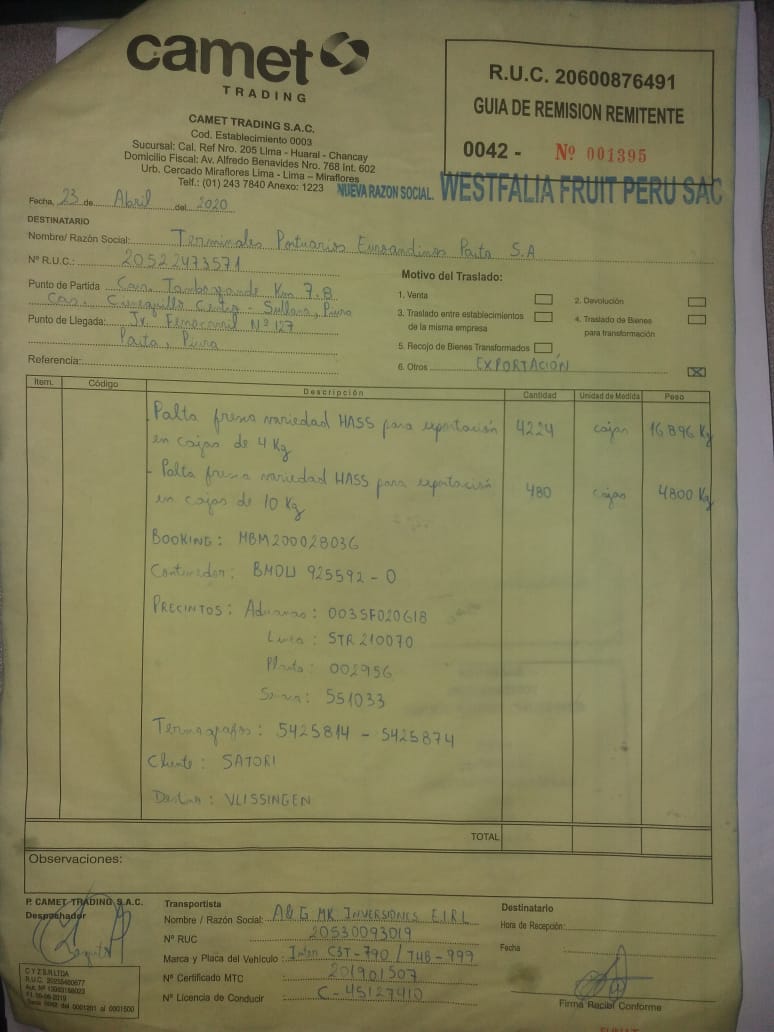 camet
TRADING
CAMET TRADING S.A.C.
Cod. Establecimiento 0003
Sucursal: Cal. Ref Nro. 205 Lima - Huaral - Chancay
Domicilio Fiscal: Av. Alfredo Benavides Nro. 768 Int. 602
Urb. Cercado Miraflores Lima - Lima – Miraflores
Telf.: (01) 243 7840 Anexo: 1223
R.U.C. 20600876491
GUIA DE REMISION REMITENTE
0042 - Nº 001395
NUEVA RAZON SOCIAL. WESTFALIA FRUIT PERU SAC
Fecha, 23 de Abril del 2020
DESTINATARIO
Nombre/ Razón Social: Terminales Portuarios Euroandinos Paita S.A
Nº R.U.C.: 20522473571
Punto de Partida Car. Tambogrande Km 7.8
Cas. Cieneguillo Centro - Sullana, Piura
Punto de Llegada: Jr. Ferrocarril Nº 127
Paita, Piura
Referencia:
Motivo del Traslado:
1. Venta
2. Devolución
3. Traslado entre establecimientos de la misma empresa
4. Traslado de Bienes para transformación
5. Recojo de Bienes Transformados
6. Otros EXPORTACIÓN
Item. Código Descripción Cantidad Unidad de Medida Peso
- Palta fresca variedad HASS para exportación 4224 cajas 16 896 Kg
en cajas de 4 Kg
- Palta fresca variedad HASS para exportación 480 cajas 4800 Kg
en cajas de 10 Kg
BOOKING: MBM200028036
Contenedor: BMOU 925592 - 0
PRECINTOS: Aduanas: 003SF020618
Linea: STR 210070
Planta: 002956
Senasa: 551033
Termografos: 5425814 - 5425874
Cliente: SATORI
Destino: VLISSINGEN
TOTAL
Observaciones:
P. CAMET TRADING S.A.C.
Despachador
C Y Z S.R.LTDA
Serie 0042 del 0001201 al 0001500
Transportista
Nombre / Razón Social: A&G MK INVERSIONES E.I.R.L
Nº RUC 20530093019
Marca y Placa del Vehículo: Inter C3T-790 / T4B-999
Nº Certificado MTC : 201901507
Nº Licencia de Conducir : C-45127410
Destinatario
Hora de Recepción:
Fecha
Firma Recibi Conforme